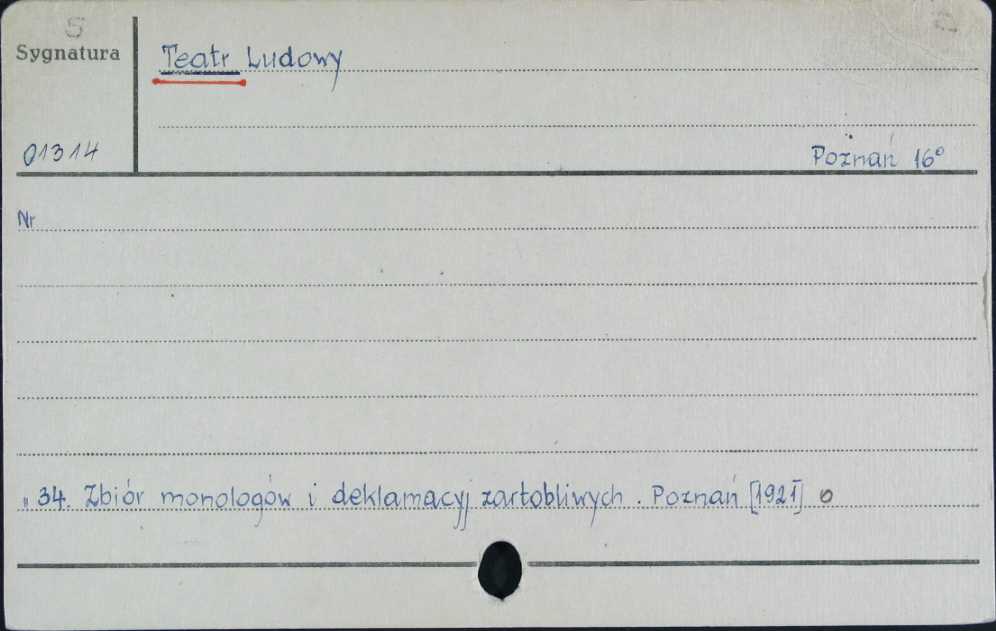 S
Sygnatura
Teatr Ludowy
01314
Poznań 16°
Nr
" 34. Zbiór monologów i deklamacyj żartobliwych. Poznań [1921] o